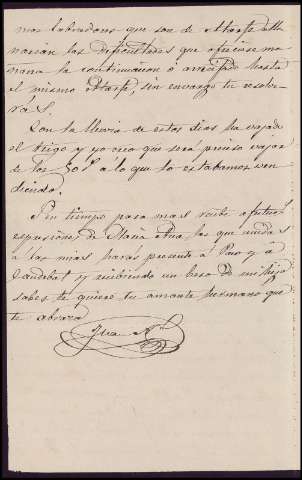 mos labradores que son de Atarfe alla
narian las dificultades que ofreciese ma
ñana la continuacion ó arrecifado hasta
el mismo Atarfe, sin envargo tu resolve
rás.
Con la lluvia de estos dias ha vajado
el trigo y yo creo que será preciso vajar
de los 50 r.s á lo que lo estabamos ven
diendo.
Sin tiempo para mas recibe afectuosas
espresiones de Maria Ana, las que unidas
á las mias harás presente á Paco y á
y recibiendo un beso de mi hijo
sabes te quiere tu amante hermano que
te abraza
Juan